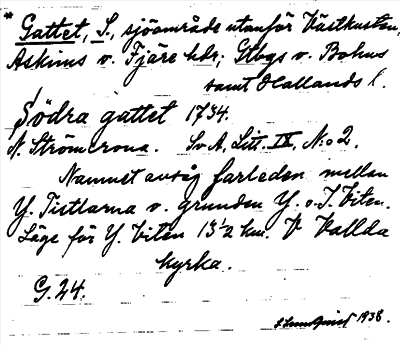 * Gattet, S., sjöområde utanför Västkusten,
Askims o. Fjäre hdr; Gtbgs o. Bohus
samt Hallands l.
Södra gattet 1734.
N. Strömcrona. Sv. A, Litt. IX, N:o 2.
Namnet avsåg farleden mellan
Y. Tistlarna o. grunden Y. o. I. Viten.
Läge för Y. Viten 13½ km. V Vallda
kyrka.
G. 24.
1938.